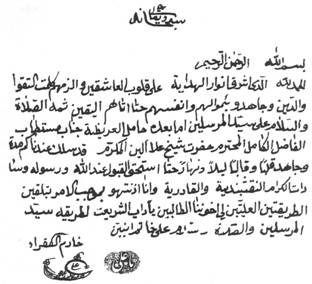 بسم الله الرحمن الرحيم
الحمد لله الذي اشرق انوار الهداية على قلوب العاشقين والزمهم كلمة التقوا
والدين وجاهدو باموالهم وانفسهم حتا اتاهم اليقين ثمه الصلاة
والسلام على سيد المرسلين اما بعد حامل العريضة جناب مستطاب
الفاضل الكامل المحترم حضرت شيخ علا الدين المكرم قد سلك عندنا كم مدة
وجاهد قلبا وقالبا ليلا ونهارا حتا استحق القبول عند الله ورسوله وسا
داتنا كرام النقشبندية والقادرية وانا اذنتهو بموجب الامر بتلقين
الطريقتين العليتين الى اخوننا الطالبين باداب الشريعت لطريقه سيد
المرسلين والصلاة والسلام على خاتم النبيين
خادم الفقراء